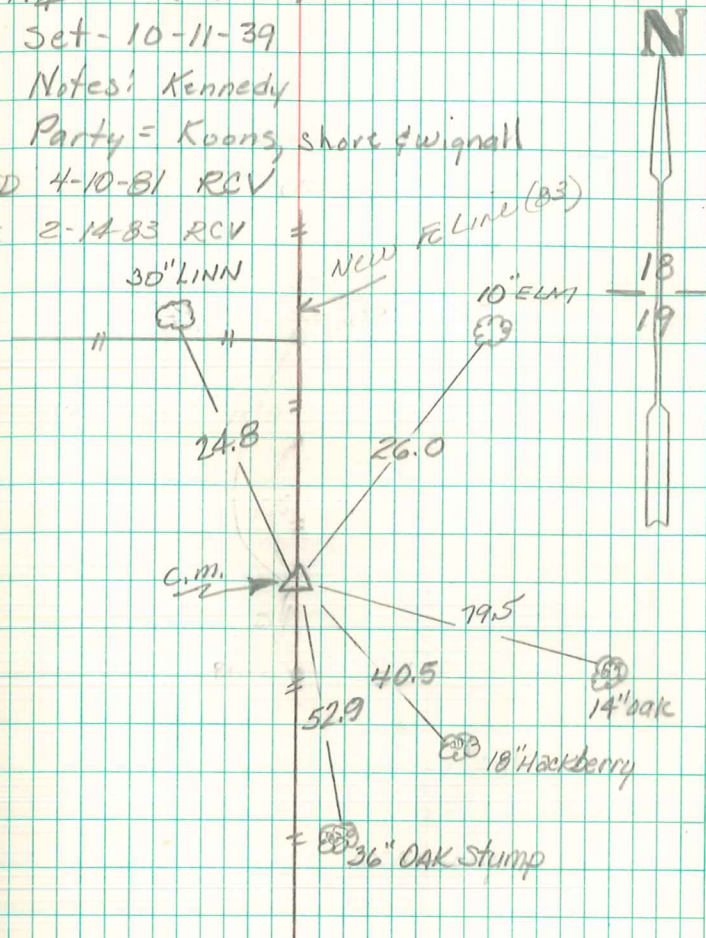 Set - 10-11-39
Notes: Kennedy
Party = Koons, Shore & Wignall
D 4-10-81 RCV
2-14-83 RCV
N
New Fc Line (83)
30" LINN
10" ELM
18
19
24.8
26.0
C.M.
79.5
40.5
14" Oak
52.9
18" Hackberry
36" OAK Stump